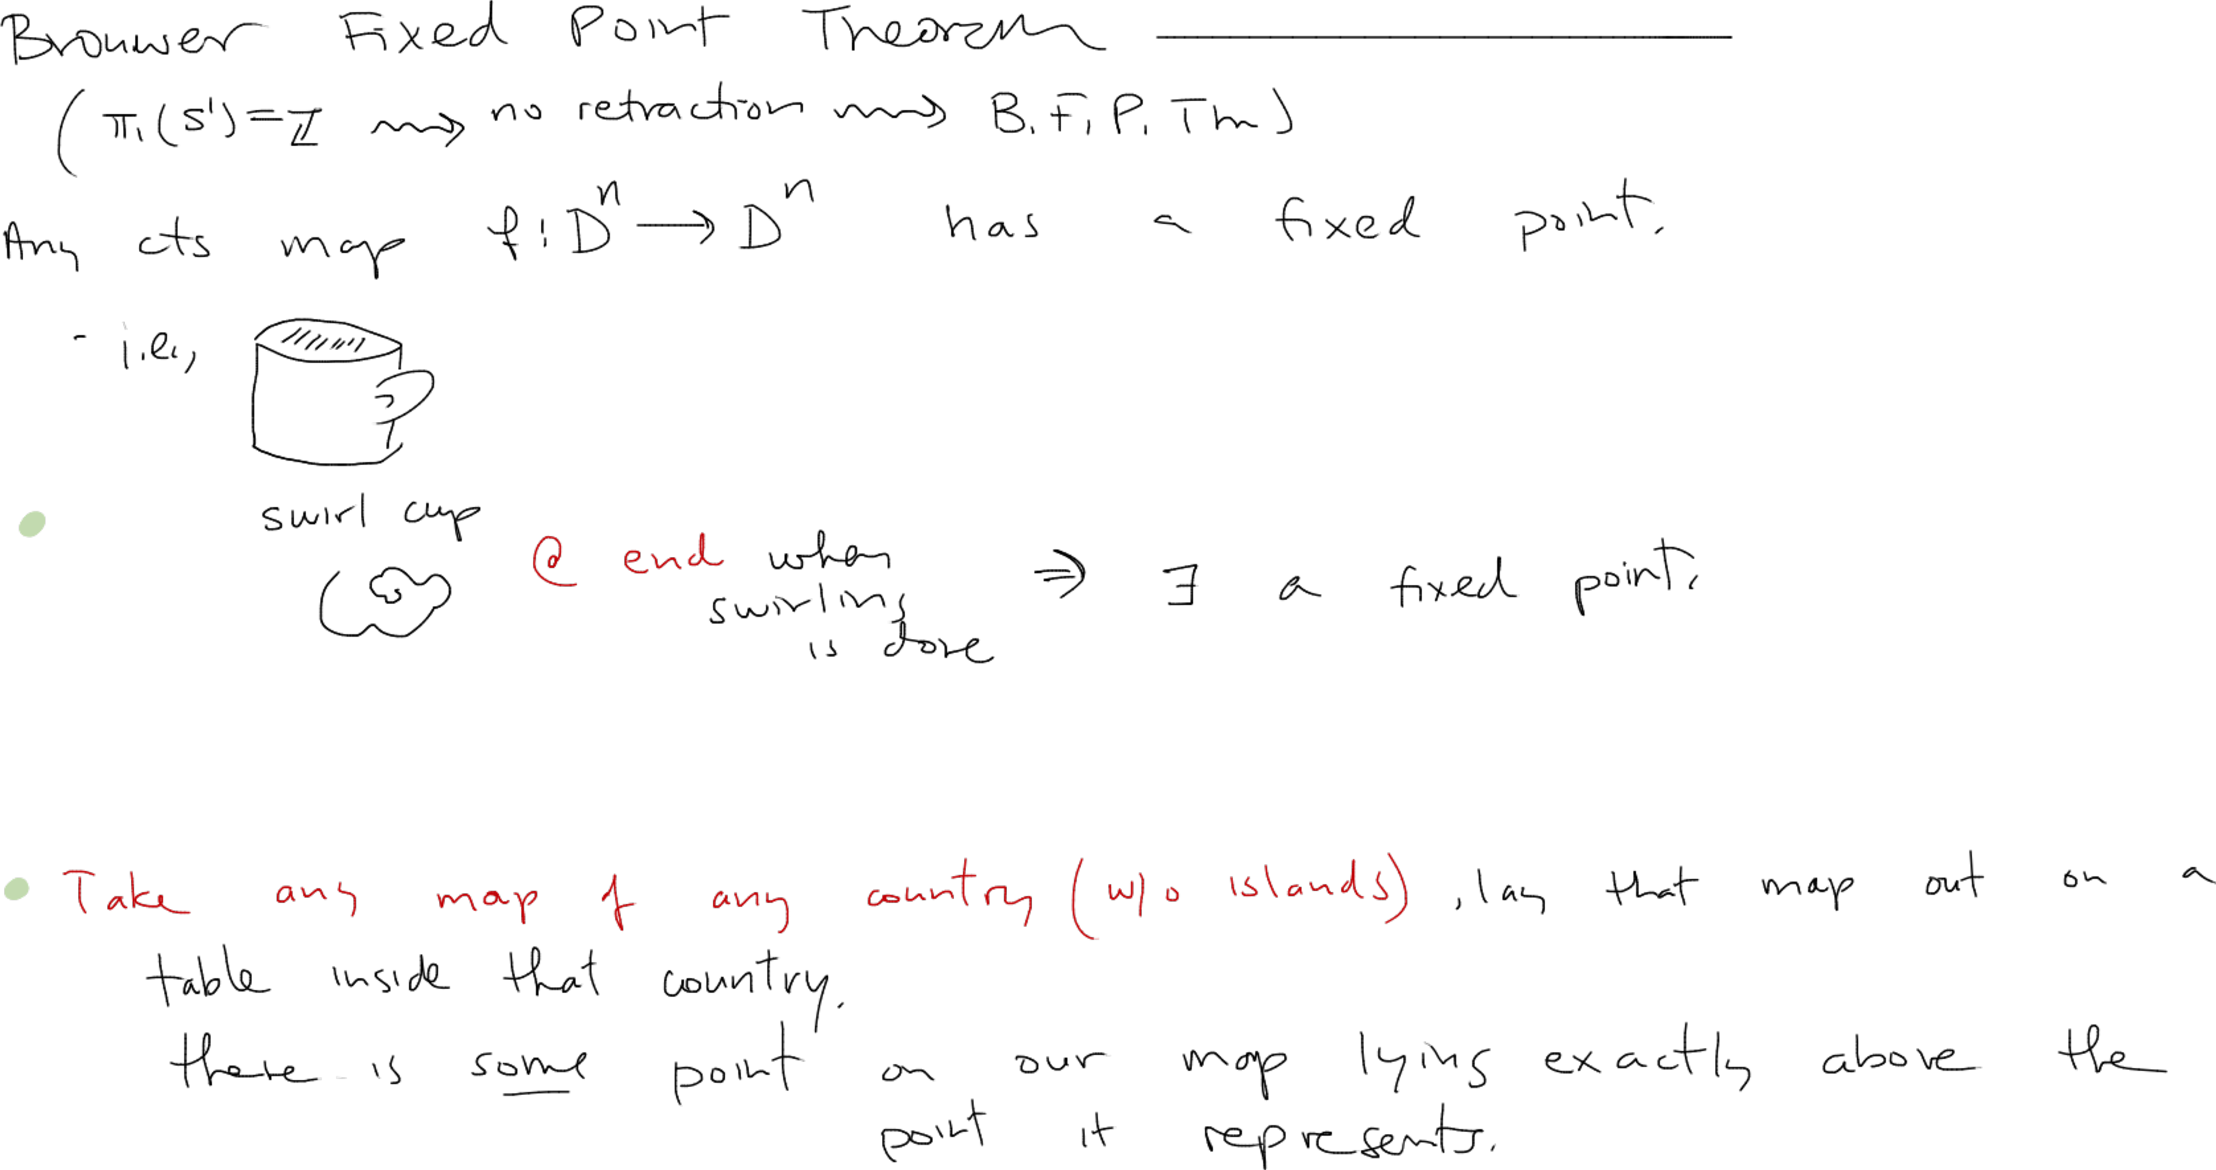 Brouwer Fixed Point Theorem
(π₁(S¹)=ℤ ⇝ no retraction ⇝ B.F.P. Thm)
Any cts map f: Dⁿ → Dⁿ has a fixed point.
- i.e.,
swirl cup
@ end when swirling is done ⇒ ∃ a fixed point.
• Take any map of any country (w/o islands), lay that map out on a
table inside that country.
there is some point on our map lying exactly above the
point it represents.